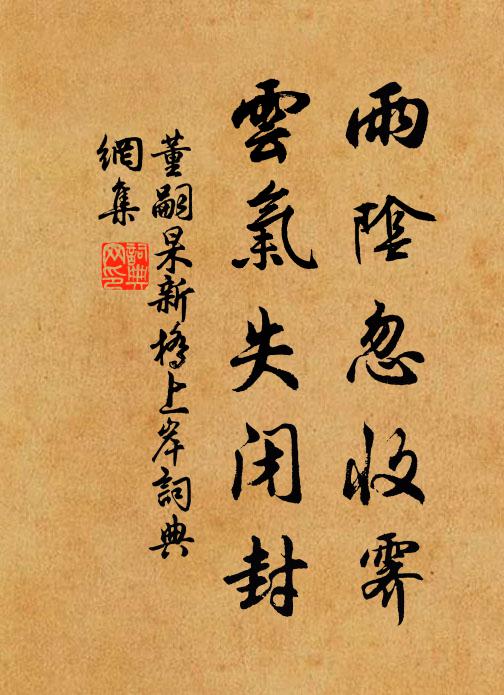 雨陰忽收霽
雲氣失閉封
董嗣杲新橋上岸詞典
網集
詞典
网印